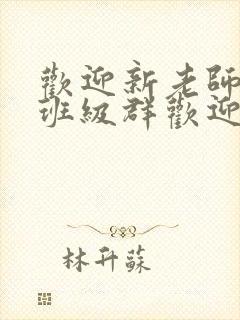 歡迎新老師
班級群歡迎
林升蘇